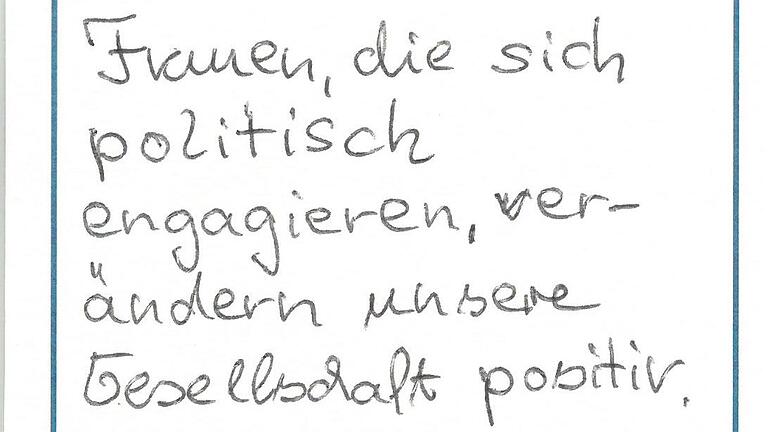 Frauen, die sich
politisch
engagieren, ver-
ändern unsere
Gesellschaft positiv.